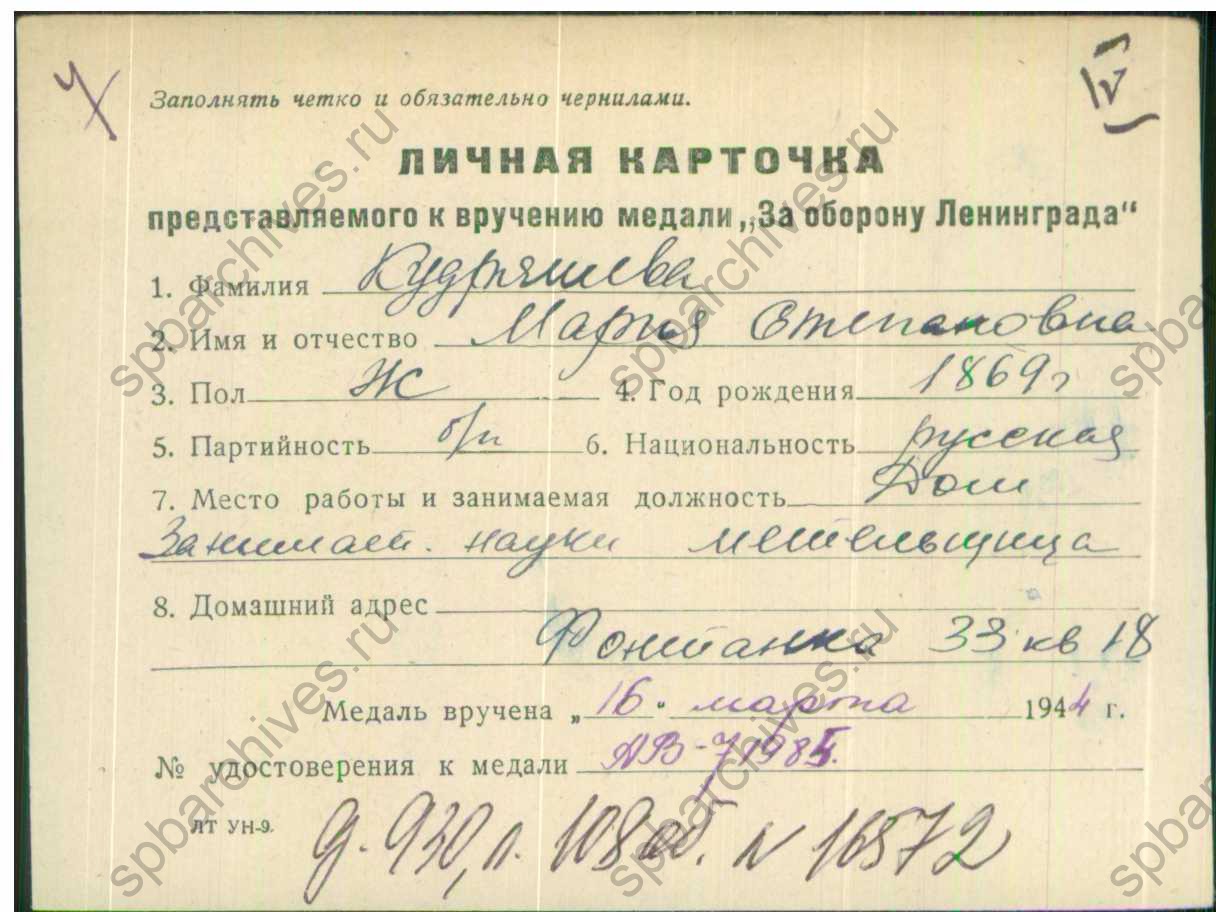 Ч
IV
Заполнять четко и обязательно чернилами.
ЛИЧНАЯ КАРТОЧКА
представляемого к вручению медали „За оборону Ленинграда“
1. Фамилия Кудряшева
2. Имя и отчество Мария Степановна
3. Пол Ж 4. Год рождения 1869г
5. Партийность б/п 6. Национальность русская
7. Место работы и занимаемая должность Дом
Занимат. науки метельщица
8. Домашний адрес
Фонтанка 33 кв 18
Медаль вручена „16“ марта 1944 г.
№ удостоверения к медали АВ-71985.
ЛТ УН-9.
д. 930, л. 108 об. N 16572
spbarchives.ru
spbarchives.ru
spbarchives.ru
spbarchives.ru